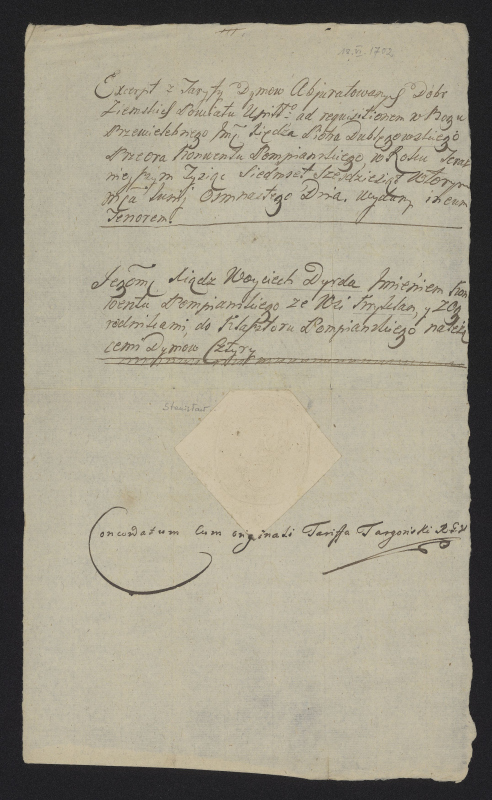 18. VI. 1762
Excerpt z Taryfy Dymow Abjuratowanych Dobr
Ziemskich Powiatu Upitt:o ad requisitionem w Bogu
Przewielebnego Jmć Xiędza Piotra
Przeora Konwentu Pompianskiego w Roku Teraz
nieyszym Tysiąc Siedmset Szescdziesiąt Wtorym
mca Junij Osmnastego Dnia. Wydany in eum
Tenorem.
Jegomć Xiądz Woyciech Dyrda Imieniem Kon
wentu Pompianskiego ze Wsi y z Og
rodnikami, do Klasztoru Pompianskiego należą
cemi Dymow Cztyry
Stanisław
Concordatum Cum originali Tariffa Targonski